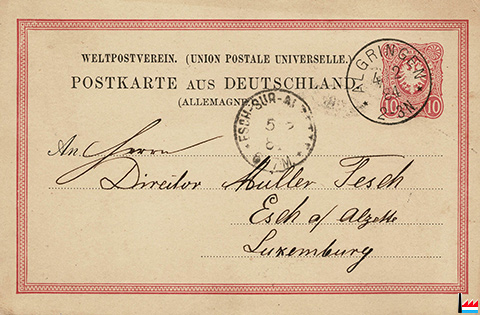 WELTPOSTVEREIN. (UNION POSTALE UNIVERSELLE.)
POSTKARTE AUS DEUTSCHLAND
(ALLEMAGNE
ALGRINGEN
4 2
84
2-3N
10 10
ESCH-SUR-AL
5
An Herrn
Director Müller Tesch
Esch a/ Alzette
Luxemburg